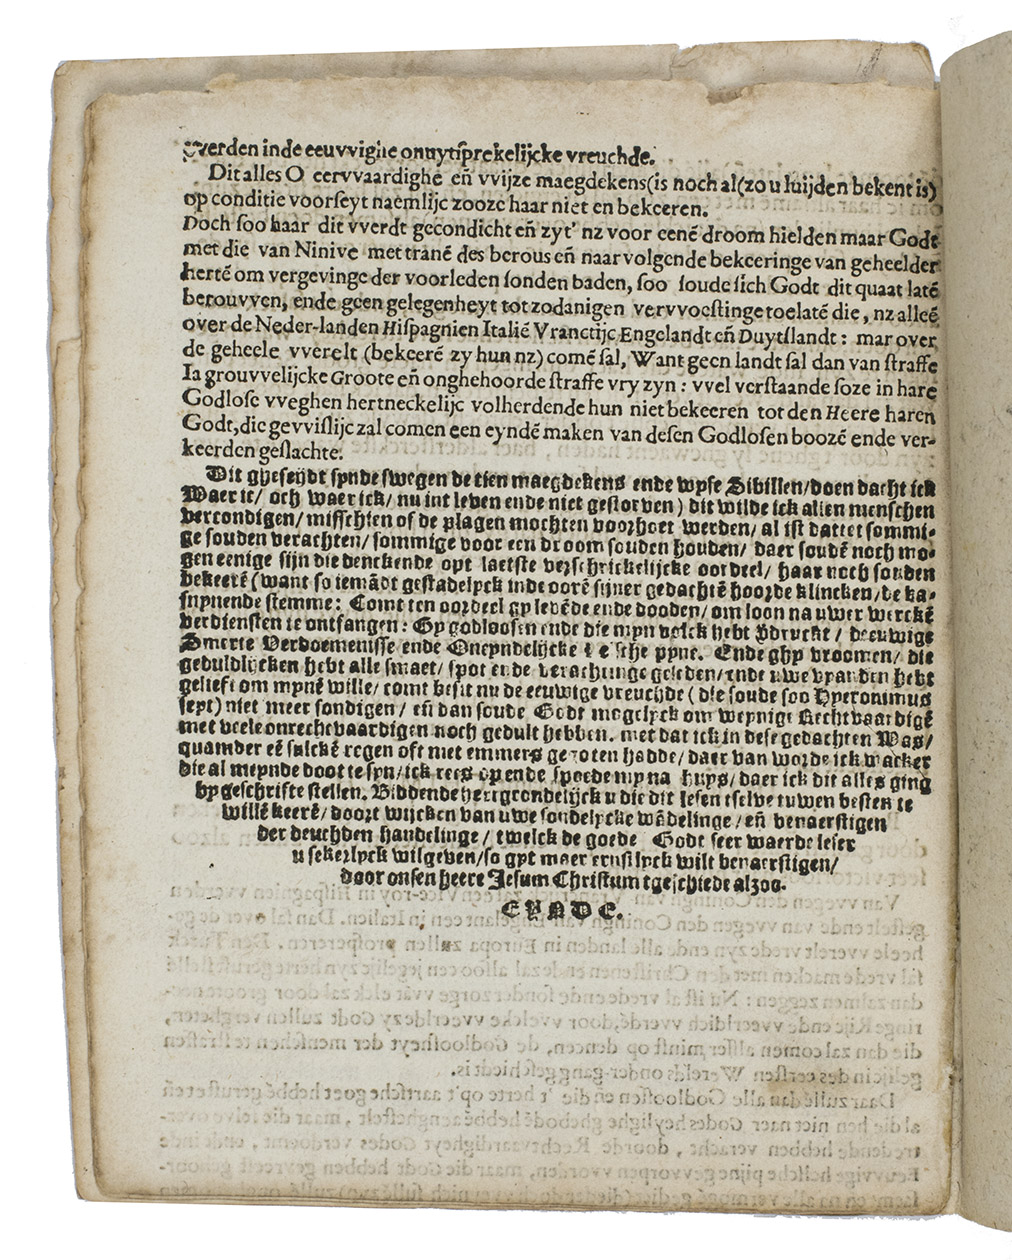 vverden inde eeuvvighe onuytſprekelijcke vreuchde.
Dit alles O eervvaardighe en̄ vvijze maegdekens (is noch al (zo u luijden bekent is)
op conditie voorſeyt naemlijc zooze haar niet en bekeeren.
Doch ſoo haar dit vverdt gecondicht en̄ zyt' nz voor eenē droom hielden maar Godt
met die van Ninive met tranē des berous en̄ naar volgende bekeeringe van geheelder
hertē om vergevinge der voorleden ſonden baden, ſoo ſoude ſich Godt dit quaat latē
berouvven, ende geen gelegenheyt tot zodanigen vervvoeſtinge toelatē die, nz alleē
over de Neder-landen Hiſpagnien Italiē Vranctijc Engelandt en̄ Duytſlandt: mar over
de geheele vverelt (bekeerē zy hun nz) comē ſal, Want geen landt ſal dan van ſtraffe
Ia grouvvelijcke Groote en̄ onghehoorde ſtraffe vry zyn: vvel verſtaande ſoze in hare
Godloſe vveghen hertneckelijc volherdende hun niet bekeeren tot den Heere haren
Godt, die gevviſlijc zal comen een eyndē maken van deſen Godloſen boozē ende ver-
keerden geſlachte.
Dit gheſeydt ſynde ſwegen de tien maegdekens ende wyſe Sibillen/ doen dacht ick
Waer ic/ och waer ick/ nu int leven ende niet geſtorven) dit wilde ick allen menſchen
vercondigen/ miſſchien of de plagen mochten voorhoet werden/ al iſt dattet ſommi-
ge ſouden verachten/ ſommige voor een droom ſouden houden/ daer ſoudē noch mo-
gen eenige ſijn die denckende opt laetſte verſchrickelijcke oordeel/ haar noch ſouden
bekeerē (want ſo iemādt geſtadelyck inde oorē ſijner gedachtē hoorde klincken/ de ba-
ſuynende ſtemme: Comt ten oordeel gy levēde ende dooden/ om loon na uwer werckē
verdienſten te ontfangen: Gy godlooſen ende die myn volck hebt verdruckt/ deeuwige
Smerte Verdoemeniſſe ende Oneyndelijcke helſche pyne. Ende ghy vroomen/ die
geduldlijcken hebt alle ſmaet/ ſpot ende verachtinge geleden/ ende uwe vyanden hebt
gelieft om mynē wille/ comt beſit nu de eeuwige vreuchde (die ſoude ſoo Hyeronimus
ſeyt) niet meer ſondigen/ en̄ dan ſoude Godt mogelyck om weynige Rechtvaardigē
met veele onrechtvaardigen noch gedult hebben. met dat ick in deſe gedachten Was/
quamder eē ſulckē regen oft met emmers gegoten hadde/ daer van worde ick wacker
die al meynde doot te ſyn/ ick rees op ende ſpoede my na huys/ daer ick dit alles ging
by geſchrifte ſtellen. Biddende hertgrondelijck u die dit leſen tſelve tuwen beſten te
willē keerē/ doort wijcken van uwe ſondelycke wādelinge/ en̄ benaerſtigen
der deuchden handelinge/ twelck de goede Godt ſeer waerde leſer
u ſekerlyck wilgeven/ ſo gyt maer ernſtlyck wilt benaerſtigen/
door onſen heere Jeſum Chriſtum tgeſchiede alzoo.
EYNDE.